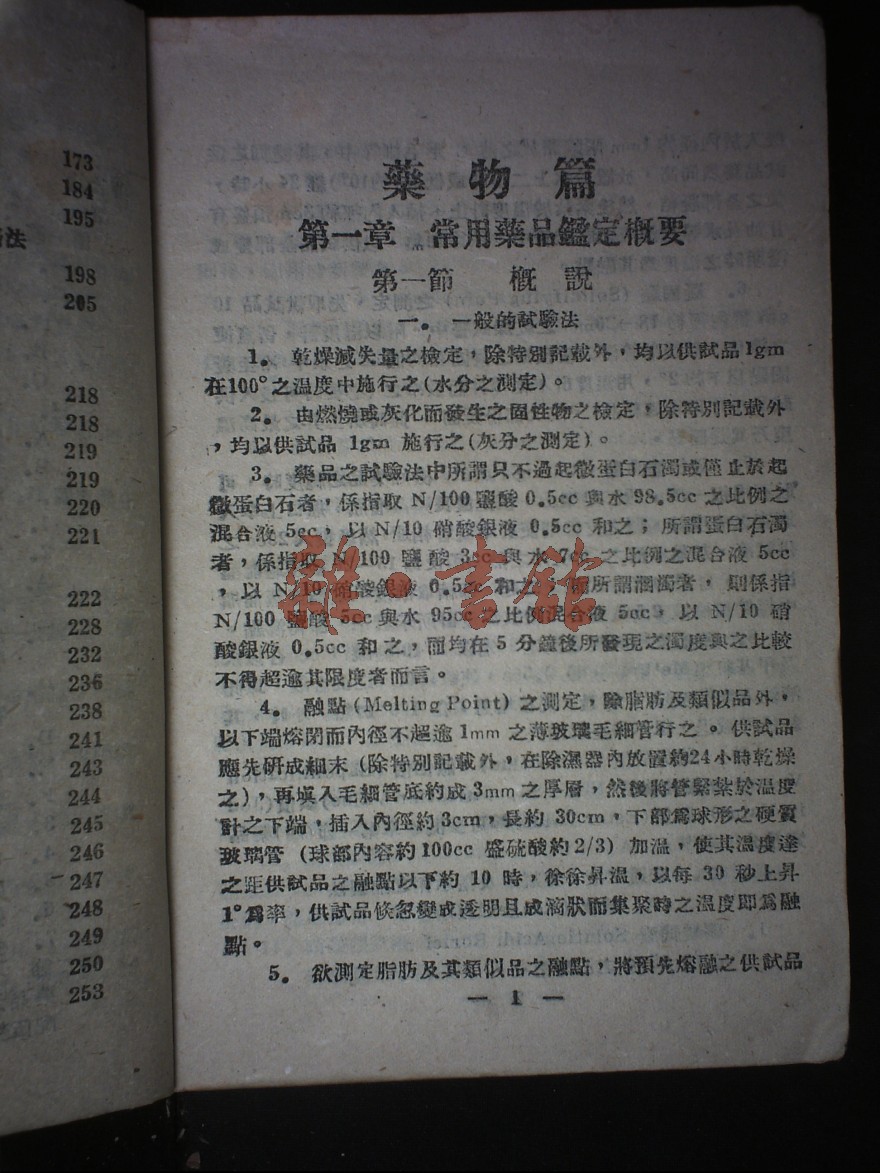 173
184
195
法
198
205
218
218
219
219
220
221
222
228
232
236
238
241
243
244
245
246
247
248
249
250
253
藥物篇
第一章 常用藥品鑑定概要
第一節 概說
一。一般的試驗法
1。乾燥減失量之檢定，除特別記載外，均以供試品1gm
在100°之温度中施行之(水分之測定)。
2。由燃燒或灰化而發生之固性物之檢定，除特別記載外
，均以供試品 1gm 施行之(灰分之測定)。
3。藥品之試驗法中所謂只不過起微蛋白石濁或僅止於起
微蛋白石者，係指取 N/100 鹽酸 0.5cc 與水 98.5cc 之比例之
混合液 5cc，以 N/10 硝酸銀液 0.5cc 和之；所謂蛋白石濁
者，係指取 N/100 鹽酸 3cc 與水 7cc 之比例之混合液 5cc
，以 N/10 硝酸銀液 0.5cc 和之；所謂溷濁者，則係指
N/100 鹽酸 5cc 與水 95cc 之比例混合液 5cc，以 N/10 硝
酸銀液 0.5cc 和之，而均在 5 分鐘後所發現之濁度與之比較
不得超逾其限度者而言。
4。融點(Melting Point) 之測定，除脂肪及類似品外，
以下端熔閉而內徑不超逾 1mm 之薄玻璃毛細管行之。供試品
應先研成細末 (除特別記載外，在除濕器內放置約24小時乾燥
之)，再填入毛細管底約成 3mm 之厚層，然後將管緊紮於温度
計之下端，插入內徑約3cm，長約 30cm，下部爲球形之硬質
玻璃管 (球部內容約100cc 盛硫酸約2/3) 加温，使其温度達
之距供試品之融點以下約 10 時，徐徐昇温，以每 30 秒上昇
1°爲率，供試品倏忽變成透明且成滴狀而集聚時之温度即爲融
點。
5。欲測定脂肪及其類似品之融點，將預先熔融之供試品
— 1 —